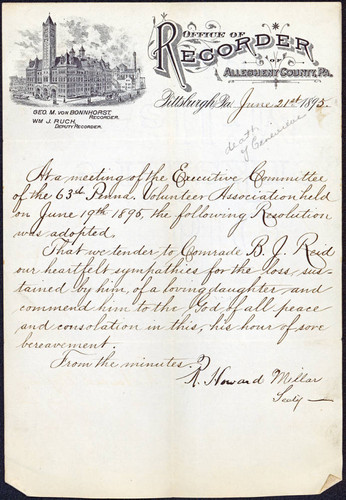 OFFICE OF
RECORDER
OF
ALLEGHENY COUNTY, PA.
GEO. M. VON BONNHORST.
RECORDER.
WM J. RUCH.
DEPUTY RECORDER.
Pittsburgh, Pa. June 21st 1895.
death
of Genevieve
At a meeting of the Executive Committee
of the 63d Penna. Volunteer Association held
on June 19th 1895, the following Resolution
was adopted.
That we tender to Comrade B. J. Reid
our heartfelt sympathies for the loss, sus-
tained by him, of a loving daughter and
commend him to the God of all peace
and consolation in this, his hour of sore
bereavement.
From the minutes.
R. Howard Millar
Secty